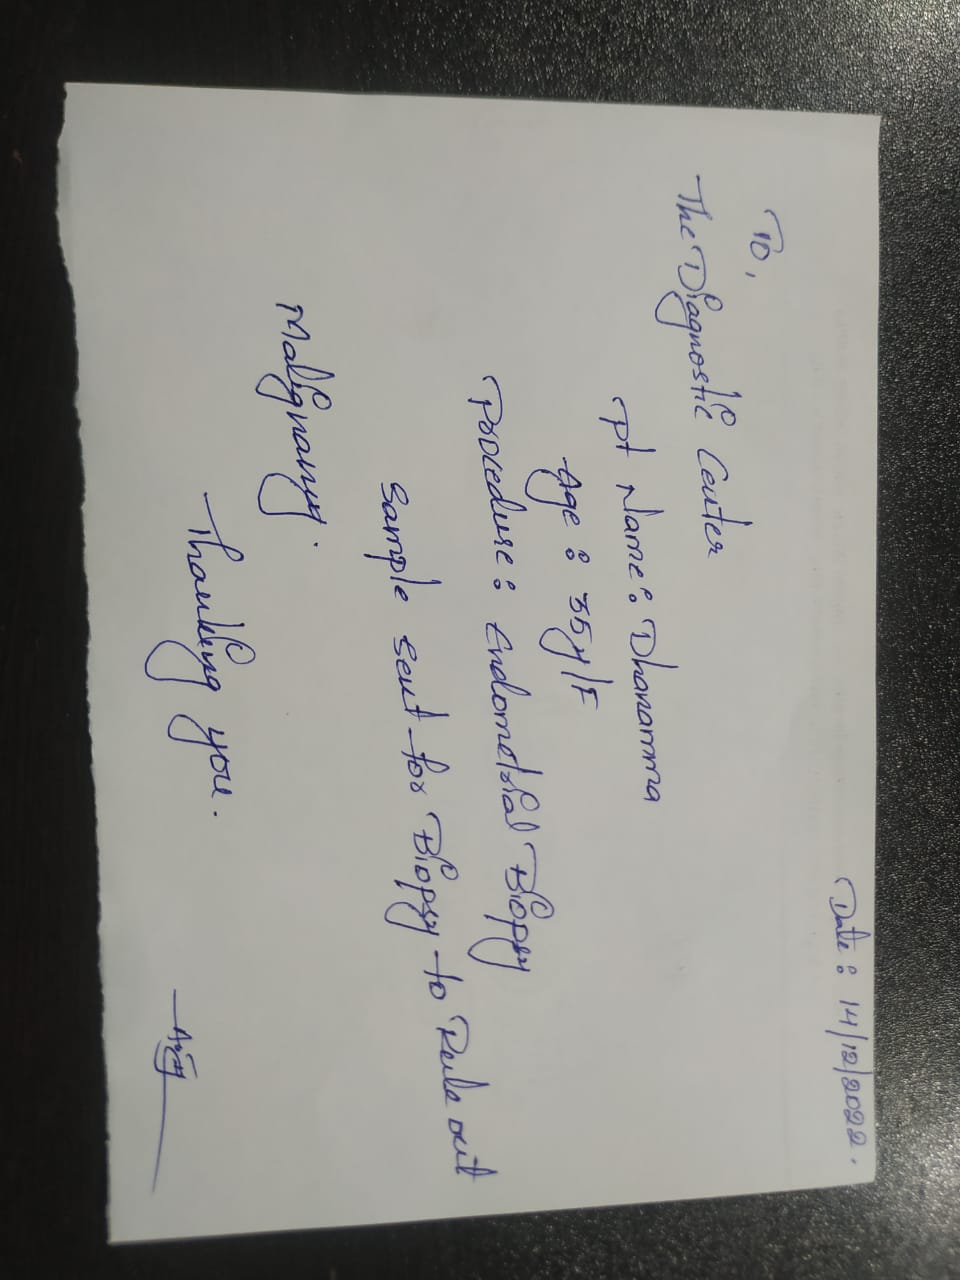 Date: 14/12/2022.
To,
The Diagnostic Center
Pt Name: Dhanamma
Age: 35y/F
Procedure: Endometrial Biopsy
Sample sent for Biopsy to Rule out
Malignancy.
Thanking you.